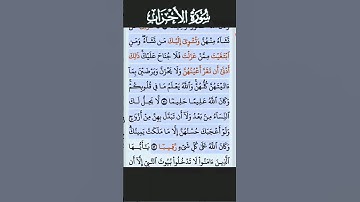 سُورَةُ الأَحْزَابِ
تَشَاءُ مِنْهُنَّ وَتُـْٔوِىٓ إِلَيْكَ مَن تَشَاءُ ۖ وَمَنِ
ٱبْتَغَيْتَ مِمَّنْ عَزَلْتَ فَلَا جُنَاحَ عَلَيْكَ ۚ ذَٰلِكَ
أَدْنَىٰٓ أَن تَقَرَّ أَعْيُنُهُنَّ وَلَا يَحْزَنَّ وَيَرْضَيْنَ بِمَآ
ءَاتَيْتَهُنَّ كُلُّهُنَّ ۚ وَٱللَّهُ يَعْلَمُ مَا فِى قُلُوبِكُمْ ۚ
وَكَانَ ٱللَّهُ عَلِيمًا حَلِيمًا ۝ لَّا يَحِلُّ لَكَ
ٱلنِّسَآءُ مِنۢ بَعْدُ وَلَآ أَن تَبَدَّلَ بِهِنَّ مِنْ أَزْوَٰجٍ
وَلَوْ أَعْجَبَكَ حُسْنُهُنَّ إِلَّا مَا مَلَكَتْ يَمِينُكَ ۗ
وَكَانَ ٱللَّهُ عَلَىٰ كُلِّ شَىْءٍ رَّقِيبًا ۝ يَـٰٓأَيُّهَا
ٱلَّذِينَ ءَامَنُوا۟ لَا تَدْخُلُوا۟ بُيُوتَ ٱلنَّبِىِّ إِلَّآ أَن